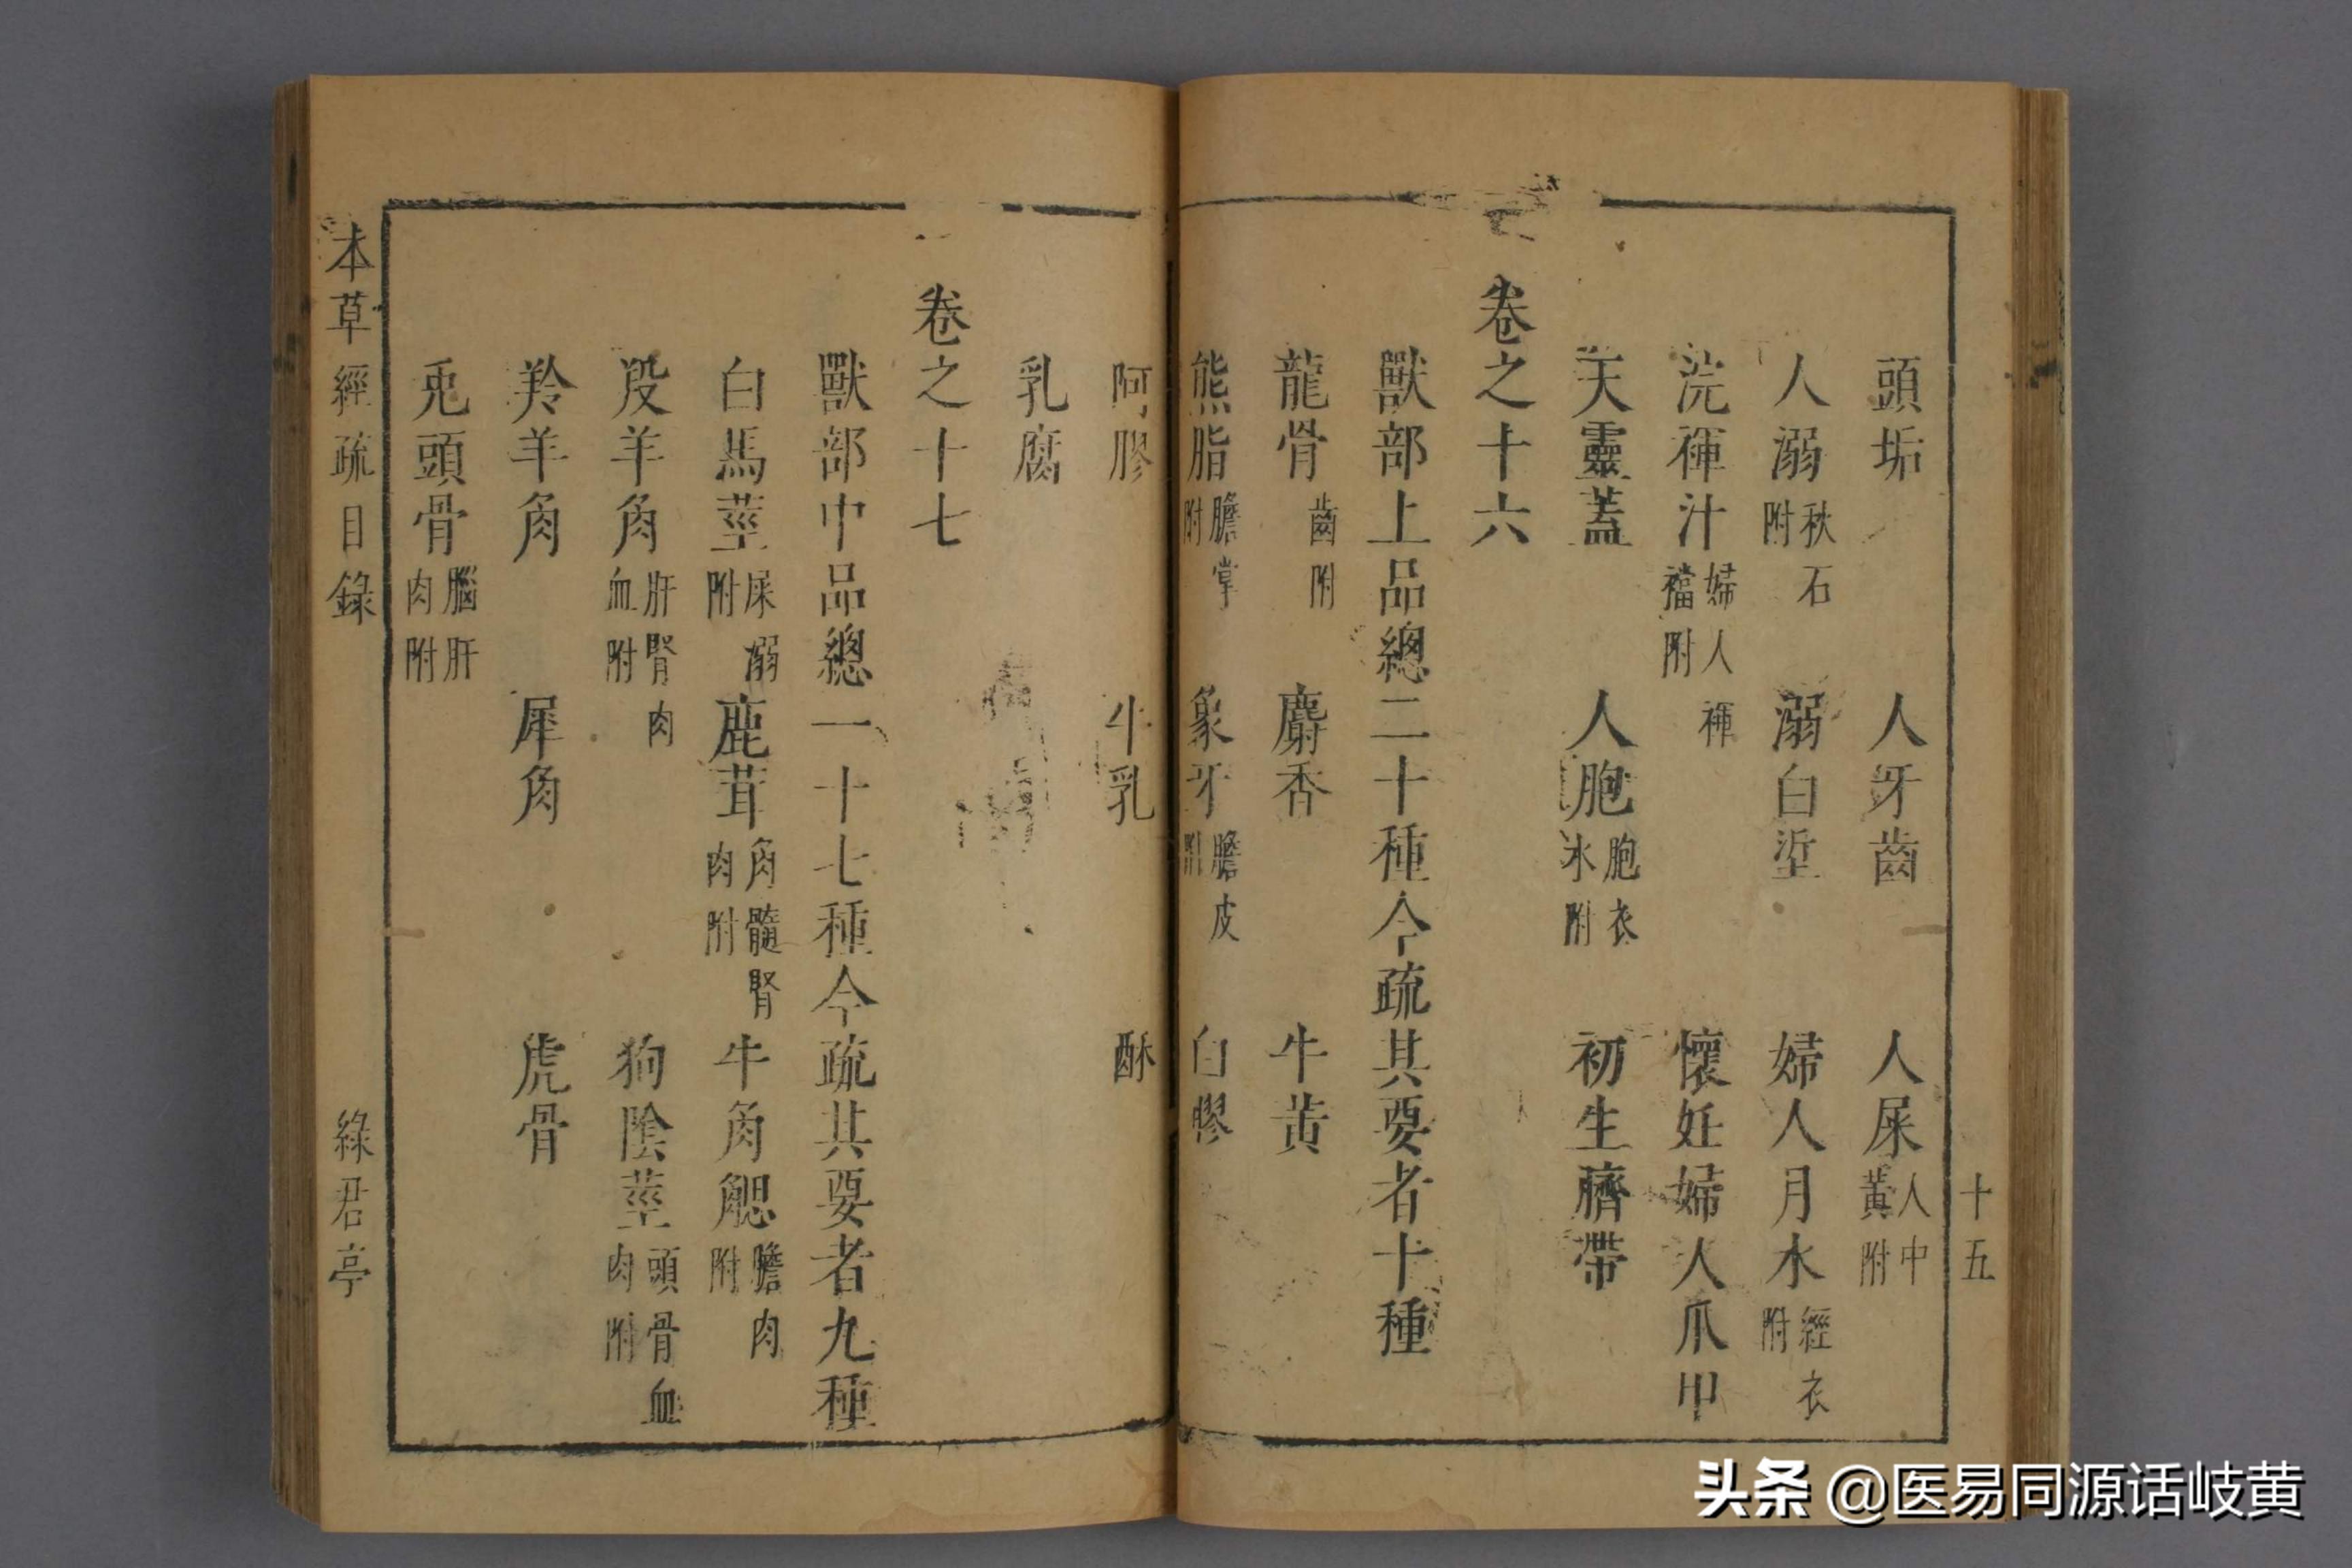 十五
頭垢 人牙齒 人屎人中黃附
人溺秋石附 溺白垽 婦人月水經衣附
浣褌汁婦人褌襠附 懷妊婦人爪甲
天靈蓋 人胞胞衣水附 初生臍帶
卷之十六
獸部上品總二十種今疏其要者十種
龍骨齒附 麝香 牛黃
熊脂膽掌附 象牙膽皮附 白膠
阿膠 牛乳 酥
乳腐
卷之十七
獸部中品總一十七種今疏其要者九種
白馬莖屎溺附 鹿茸角髓腎肉附 牛角䚡膽肉附
羖羊角肝腎肉血附 狗陰莖頭骨血肉附
羚羊角 犀角 虎骨
兎頭骨腦肝肉附
本草經疏目錄 綠君亭
头条 @医易同源话岐黄